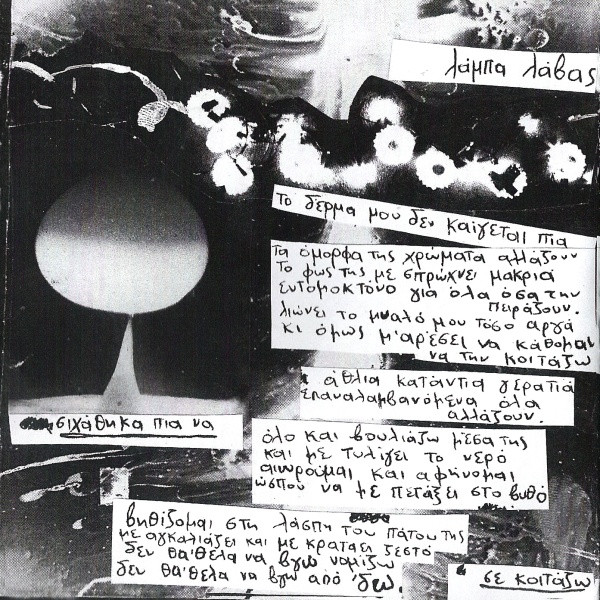 λάμπα λάβας
το δέρμα μου δεν καίγεται πια
τα όμορφα της χρώματα αλλάζουν
το φως της με σπρώχνει μακριά
εντομοκτόνο για όλα όσα την
πειράζουν.
λιώνει το μυαλό μου τόσο αργά
κι όμως μ'αρέσει να κάθομαι
να την κοιτάζω
άθλια κατάντια γερατιά
επαναλαμβανόμενα όλα
αλλάζουν.
σιχάθηκα πια να
όλο και βουλιάζω μέσα της
και με τυλίγει το νερό
αιωρούμαι και αφήνομαι
ώσπου να με πετάξει στο βυθό
βηθίζομαι στη λάσπη του πάτου της
με αγκαλιάζει και με κρατάει ζεστό
δεν θα'θελα να βγω νομίζω
δεν θα'θελα να βγω από 'δω.
σε κοιτάζω